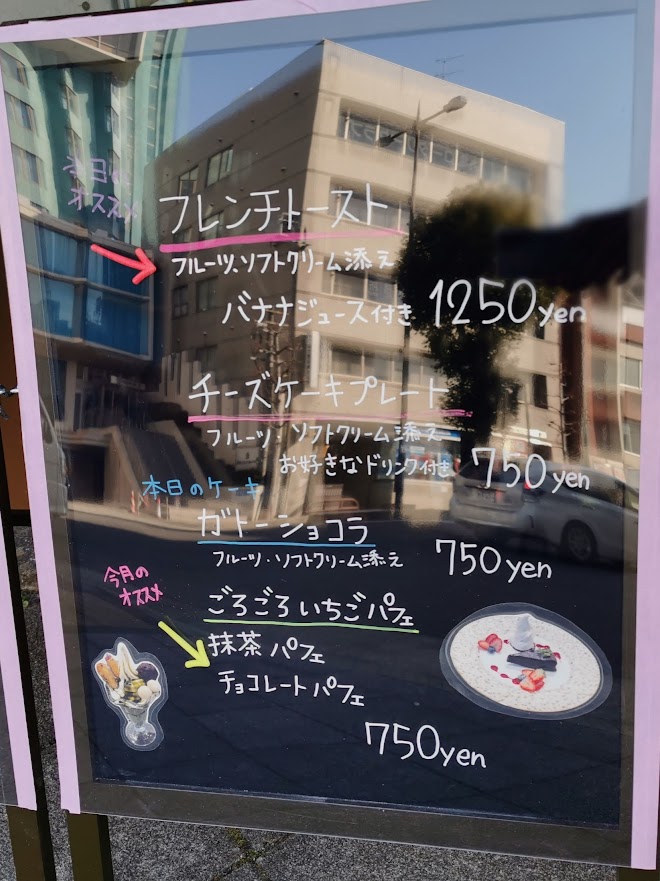 本日の
オススメ
フレンチトースト
フルーツ、ソフトクリーム添え
バナナジュース付き 1250yen
チーズケーキプレート
フルーツ・ソフトクリーム添え
お好きなドリンク付き 750yen
本日のケーキ
ガトーショコラ
フルーツ・ソフトクリーム添え 750yen
今月の
オススメ
ごろごろいちごパフェ
抹茶パフェ
チョコレートパフェ
750yen